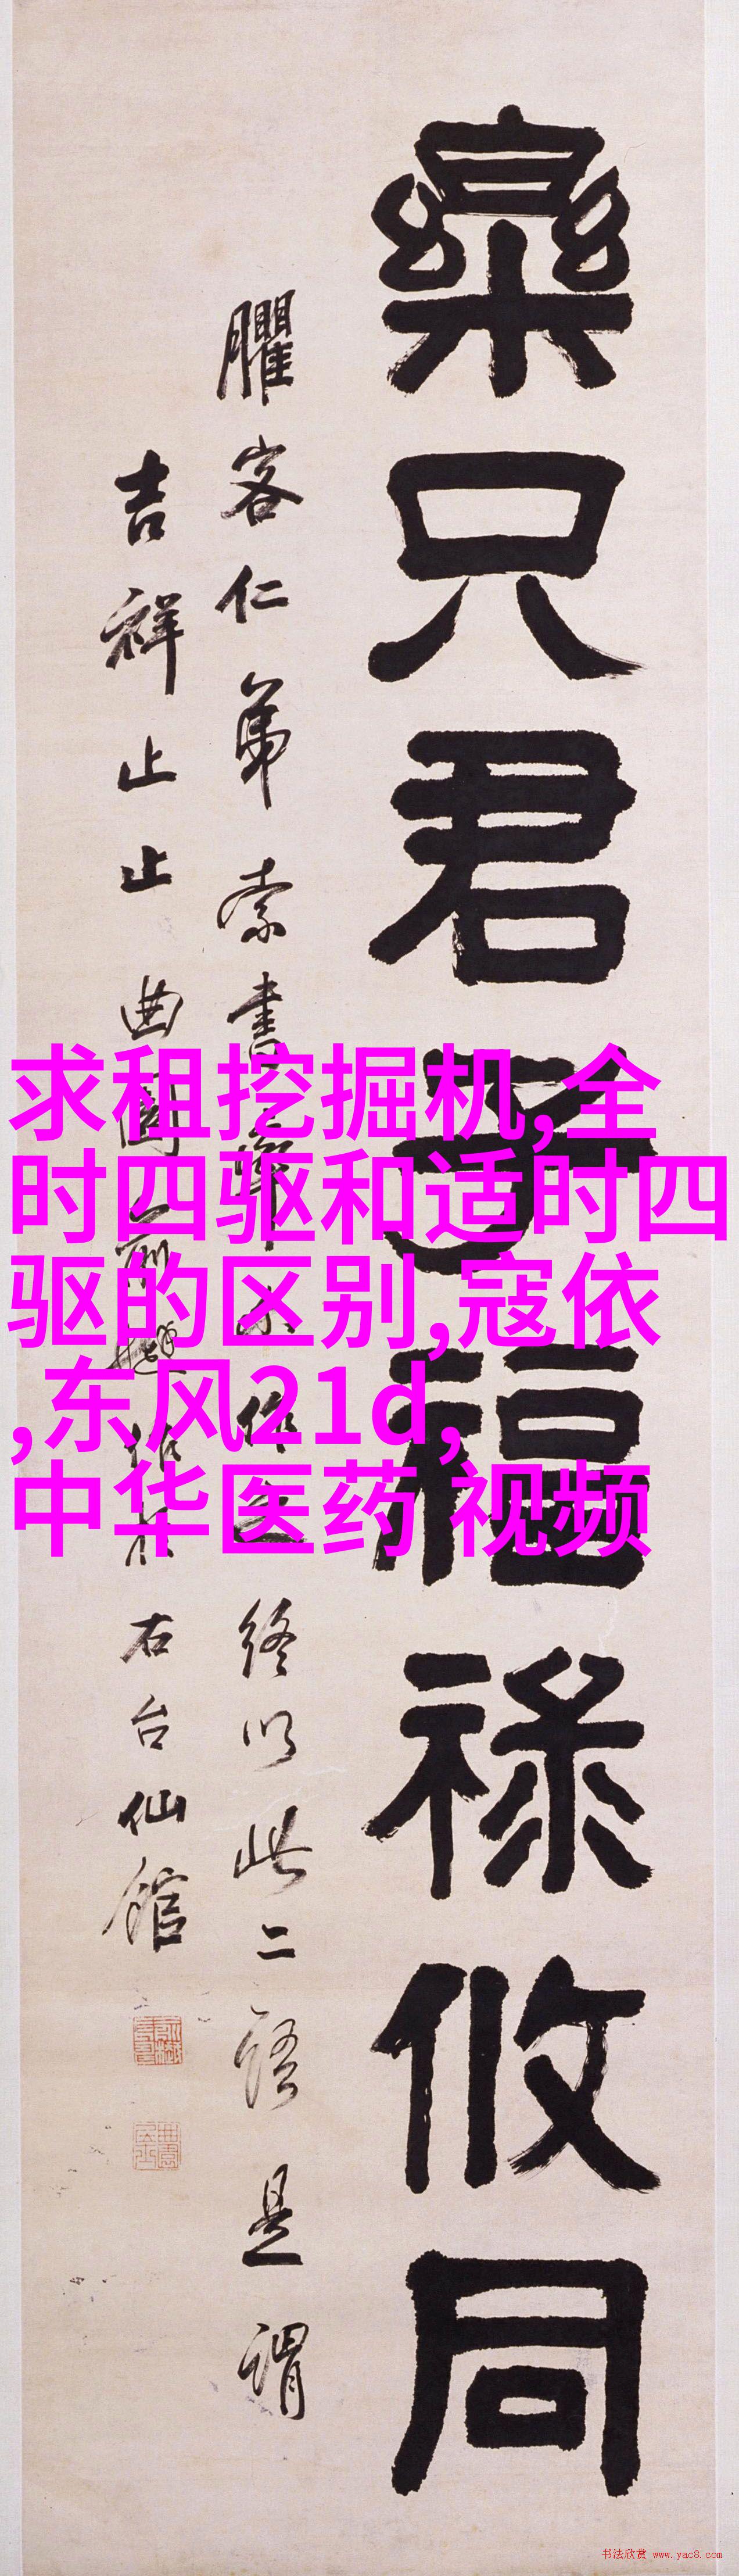 樂只君子福祿攸同
臞客仁弟索書
終以此二語是謂
吉祥止止曲園
右台仙館
求租挖掘机,全
时四驱和适时四
驱的区别,寇依
,东风21d,
中华医药 视频
书法欣赏 www.yac8.com